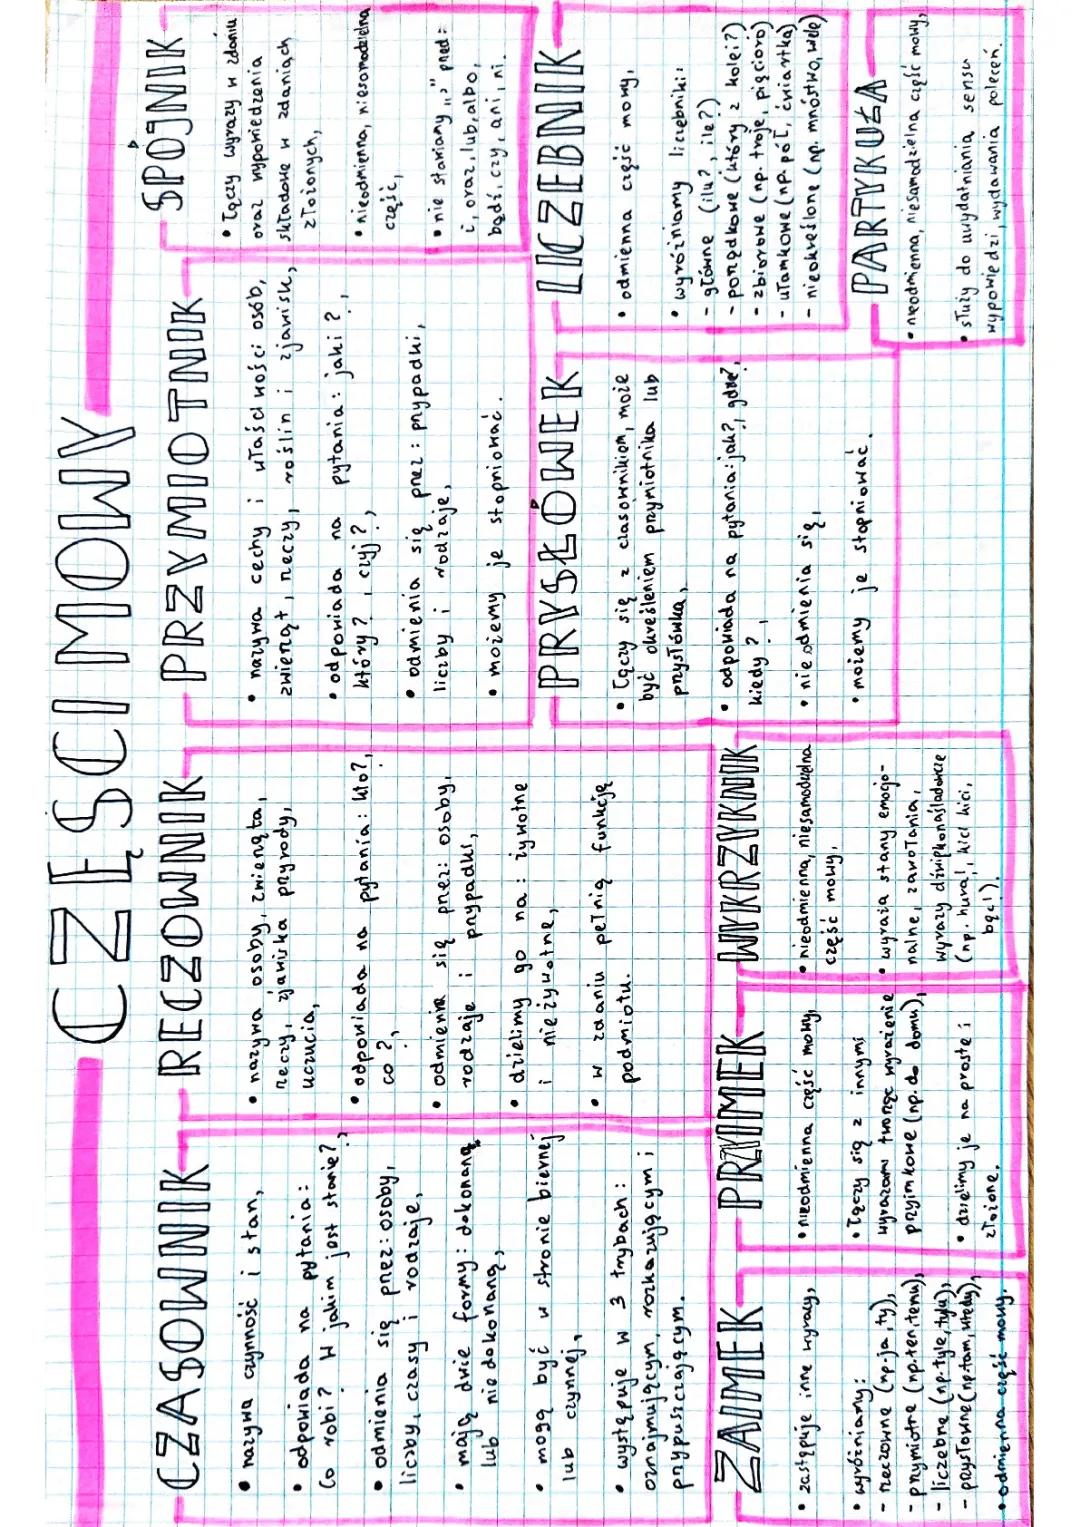 CZĘŚCI MOWY
CZASOWNIK
• nazywa czynność i stan,
• odpowiada na pytania:
co robi? w jakim jest stanie?,
• odmienia się przez: osoby,
liczby, czasy i rodzaje,
• mają dwie formy: dokonaną
lub niedokonaną,
• mogą być w stronie biernej
lub czynnej,
• występuje w 3 trybach:
oznajmującym, rozkazującym i
przypuszczającym.
RECZOWNIK
• nazywa osoby, zwierzęta,
rzeczy, zjawiska przyrody,
uczucia,
• odpowiada na pytania: kto?,
co?,
• odmienia się przez: osoby,
rodzaje i przypadki,
• dzielimy go na: żywotne
i nieżywotne,
• w zdaniu pełnią funkcję
podmiotu.
PRZYMIOTNIK
• nazywa cechy i właściwości osób,
zwierząt, rzeczy, roślin i zjawisk,
• odpowiada na pytania: jaki?,
który?, czyj?,
• odmienia się przez: przypadki,
liczby i rodzaje,
• możemy je stopniować.
SPÓJNIK
• łączy wyrazy w zdaniu
oraz wypowiedzenia
składowe w zdaniach
złożonych,
• nieodmienna, niesamodzielna
część,
• nie stawiamy „," przed:
i, oraz, lub, albo,
bądź, czy, ani, ni.
ZAIMEK
• zastępuje inne wyrazy,
• wyróżniamy:
- rzeczowne (np. ja, ty),
- przymiotne (np. ten, temu),
- liczebne (np. tyle, tylu),
- przysłowne (np. tam, wtedy),
• odmienna część mowy.
PRZYIMEK
• nieodmienna część mowy,
• łączy się z innymi
wyrazami tworząc wyrażenie
przyimkowe (np. do domu),
• dzielimy je na proste i
złożone.
WYKRZYKNIK
• nieodmienna, niesamodzielna
część mowy,
• wyraża stany emocjo-
nalne, zawołania,
wyrazy dźwiękonaśladowcze
(np. hura!, kici kici,
bęc!).
PRYSŁÓWEK
• łączy się z clasownikiem, może
być określeniem przymiotnika lub
przysłówka,
• odpowiada na pytania: jak?, gdzie?,
kiedy?,
• nie odmienia się,
• możemy je stopniować.
LICZEBNIK
• odmienna część mowy,
• wyróżniamy liczebniki:
- główne (ilu?, ile?)
- porządkowe (który z kolei?)
- zbiorowe (np. troje, pięcioro)
- ułamkowe (np. pół, ćwiartka)
- nieokreślone (np. mnóstwo, wiele)
PARTYKUŁA
• nieodmienna, niesamodzielna część mowy,
• służy do uwydatniania sensu
wypowiedzi, wydawania poleceń.